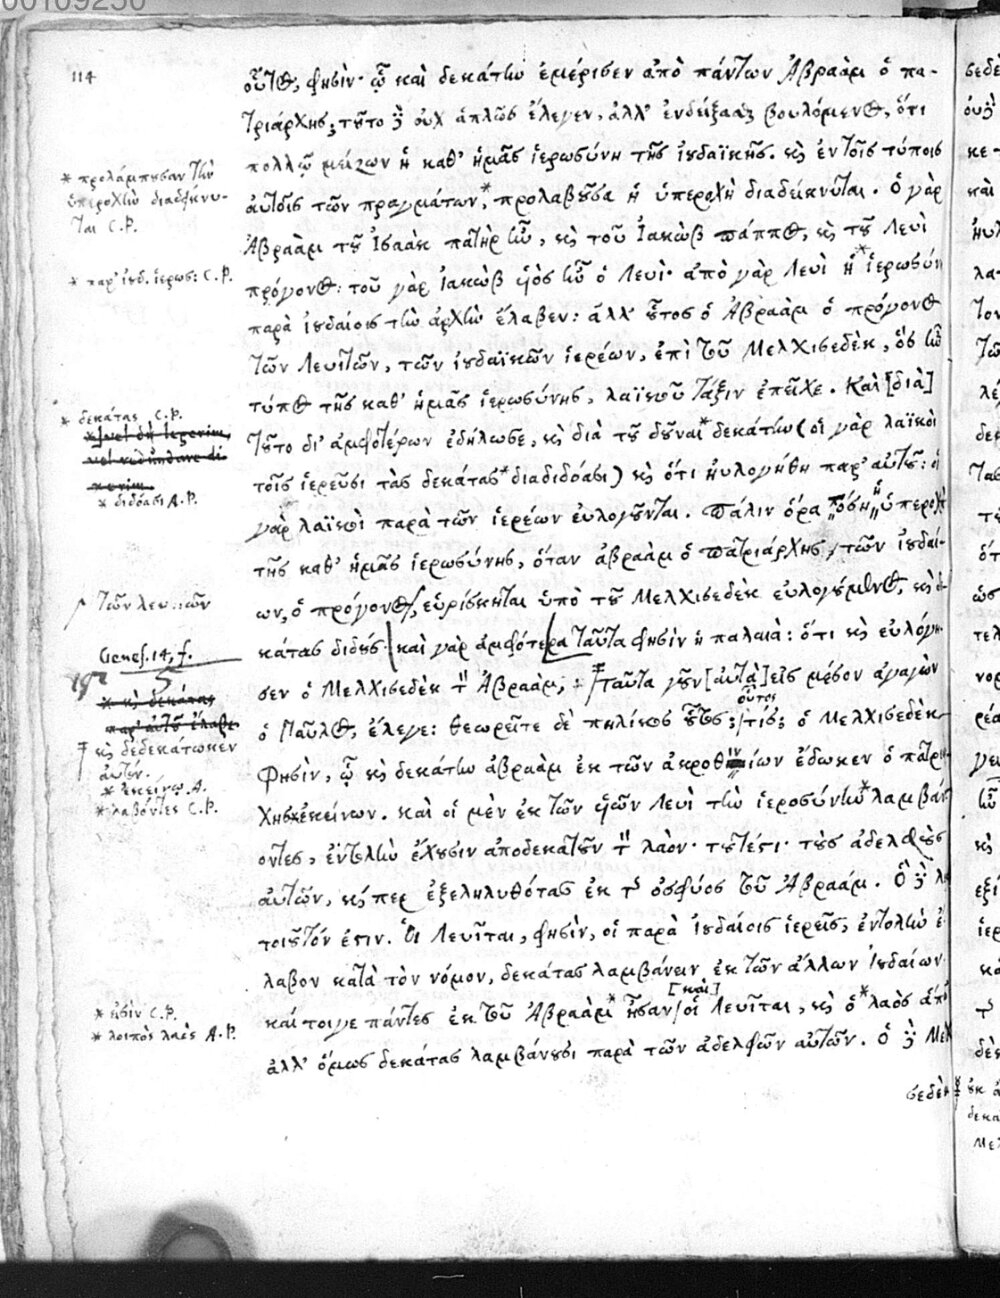 00109250
114
οὗτος, φησὶν· ᾧ καὶ δεκάτην ἐμέρισεν ἀπὸ πάντων Ἀβραὰμ ὁ πα-
τριάρχης; τοῦτο δὲ οὐχ ἁπλῶς ἔλεγεν, ἀλλ' ἐνδείξασθαι βουλόμενος, ὅτι
πολλῷ μείζων ἡ καθ' ἡμᾶς ἱερωσύνη τῆς ἰουδαϊκῆς. καὶ ἐν τοῖς τύποις
αὐτοῖς τῶν πραγμάτων,* προλαβοῦσα ἡ ὑπεροχὴ διαδείκνυται. Ὁ γὰρ
Ἀβραὰμ τοῦ Ἰσαὰκ πατὴρ ἦν, καὶ τοῦ Ἰακὼβ πάππος, καὶ τοῦ Λευὶ
πρόγονος: τοῦ γὰρ Ἰακὼβ υἱὸς ἦν ὁ Λευὶ· ἀπὸ γὰρ Λευὶ ἡ* ἱερωσύνη
παρὰ ἰουδαίοις τὴν ἀρχὴν ἔλαβεν: ἀλλ' οὗτος ὁ Ἀβραὰμ ὁ πρόγονος
τῶν Λευϊτῶν, τῶν ἰουδαϊκῶν ἱερέων, ἐπὶ τοῦ Μελχισεδὲκ, ὃς ἦν
τύπος τῆς καθ' ἡμᾶς ἱερωσύνης, λαϊκοῦ τάξιν ἐπεῖχε. Καὶ [διὰ]
τοῦτο δι' ἀμφοτέρων ἐδήλωσε, καὶ διὰ τοῦ δοῦναι* δεκάτην (οἱ γὰρ λαϊκοὶ
τοῖς ἱερεῦσι τὰς δεκάτας* διαδιδόασι) καὶ ὅτι ηὐλογήθη παρ' αὐτοῦ: οἱ
γὰρ λαϊκοὶ παρὰ τῶν ἱερέων εὐλογοῦνται. Πάλιν ὅρα πόση ἡ ὑπεροχὴ
τῆς καθ' ἡμᾶς ἱερωσύνης, ὅταν ἀβραὰμ ὁ πατριάρχης, τῶν ἰουδαί-
ων, ὁ πρόγονος, εὑρίσκηται ὑπὸ τοῦ Μελχισεδὲκ εὐλογούμενος, καὶ δε-
κάτας διδούς· καὶ γὰρ ἀμφότερα ταῦτα φησὶν ἡ παλαιά: ὅτι καὶ εὐλόγη-
σεν ὁ Μελχισεδὲκ τὸν Ἀβραάμ; ταῦτα γοῦν [αὐτὰ] εἰς μέσον ἀγαγὼν
οὗτος
ὁ Παῦλος, ἔλεγε: θεωρεῖτε δὲ πηλίκος οὗτος; τίς; ὁ Μελχισεδὲκ
φησὶν, ᾧ καὶ δεκάτην ἀβραὰμ ἐκ τῶν ἀκροθινίων ἔδωκεν ὁ πατριάρ-
χης* ἐκείνων. καὶ οἱ μὲν ἐκ τῶν υἱῶν Λευὶ τὴν ἱεροσύνην* λαμβάν-
οντες, ἐντολὴν ἔχουσιν ἀποδεκατοῦν τὸν λαὸν· τουτέστι· τοὺς ἀδελφοὺς
αὐτῶν, καίπερ ἐξεληλυθότας ἐκ τῆς ὀσφύος τοῦ Ἀβραάμ. Ὃ δὲ λέ
τοιοῦτόν ἐστιν. Οἱ Λευῖται, φησὶν, οἱ παρὰ ἰουδαίοις ἱερεῖς, ἐντολὴν ἔ
λαβον κατὰ τὸν νόμον, δεκάτας λαμβάνειν ἐκ τῶν ἄλλων Ἰουδαίων·
[καὶ]
καί τοιγε πάντες ἐκ τοῦ Ἀβραὰμ* ἦσαν οἱ Λευῖται, καὶ ὁ* λαὸς ἅπας
ἀλλ' ὅμως δεκάτας λαμβάνουσι παρὰ τῶν ἀδελφῶν αὐτῶν. Ὁ δὲ Μελχ
σεδὲκ
* προλάμπουσαν τὴν
ὑπεροχὴν διαδείκνυ-
ται C.P.
* παρ' ἰουδ. ἱερωσ: C.P.
* δεκάτας C.P.
* διδόασι A.P.
τῶν λευιτῶν
Genes. 14,
καὶ δεδεκάτωκεν
αὐτόν.
* ἐκείνῳ. A.
* λαβόντες C.P.
* εἰσὶν C.P.
* λοιπὸς λαὸς A.P.